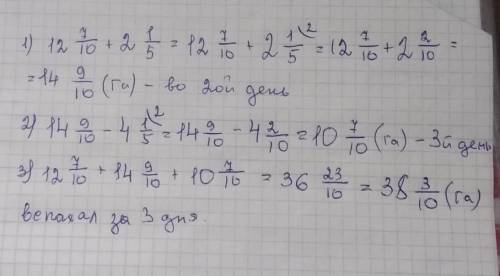 1) 12 7/10 + 2 1/5 = 12 7/10 + 2 1/5 \² = 12 7/10 + 2 2/10 =
= 14 9/10 (га) – во 2ой день
2) 14 9/10 – 4 1/5 \² = 14 9/10 – 4 2/10 = 10 7/10 (га) – 3й день
3) 12 7/10 + 14 9/10 + 10 7/10 = 36 23/10 = 38 3/10 (га)
вспахал за 3 дня.